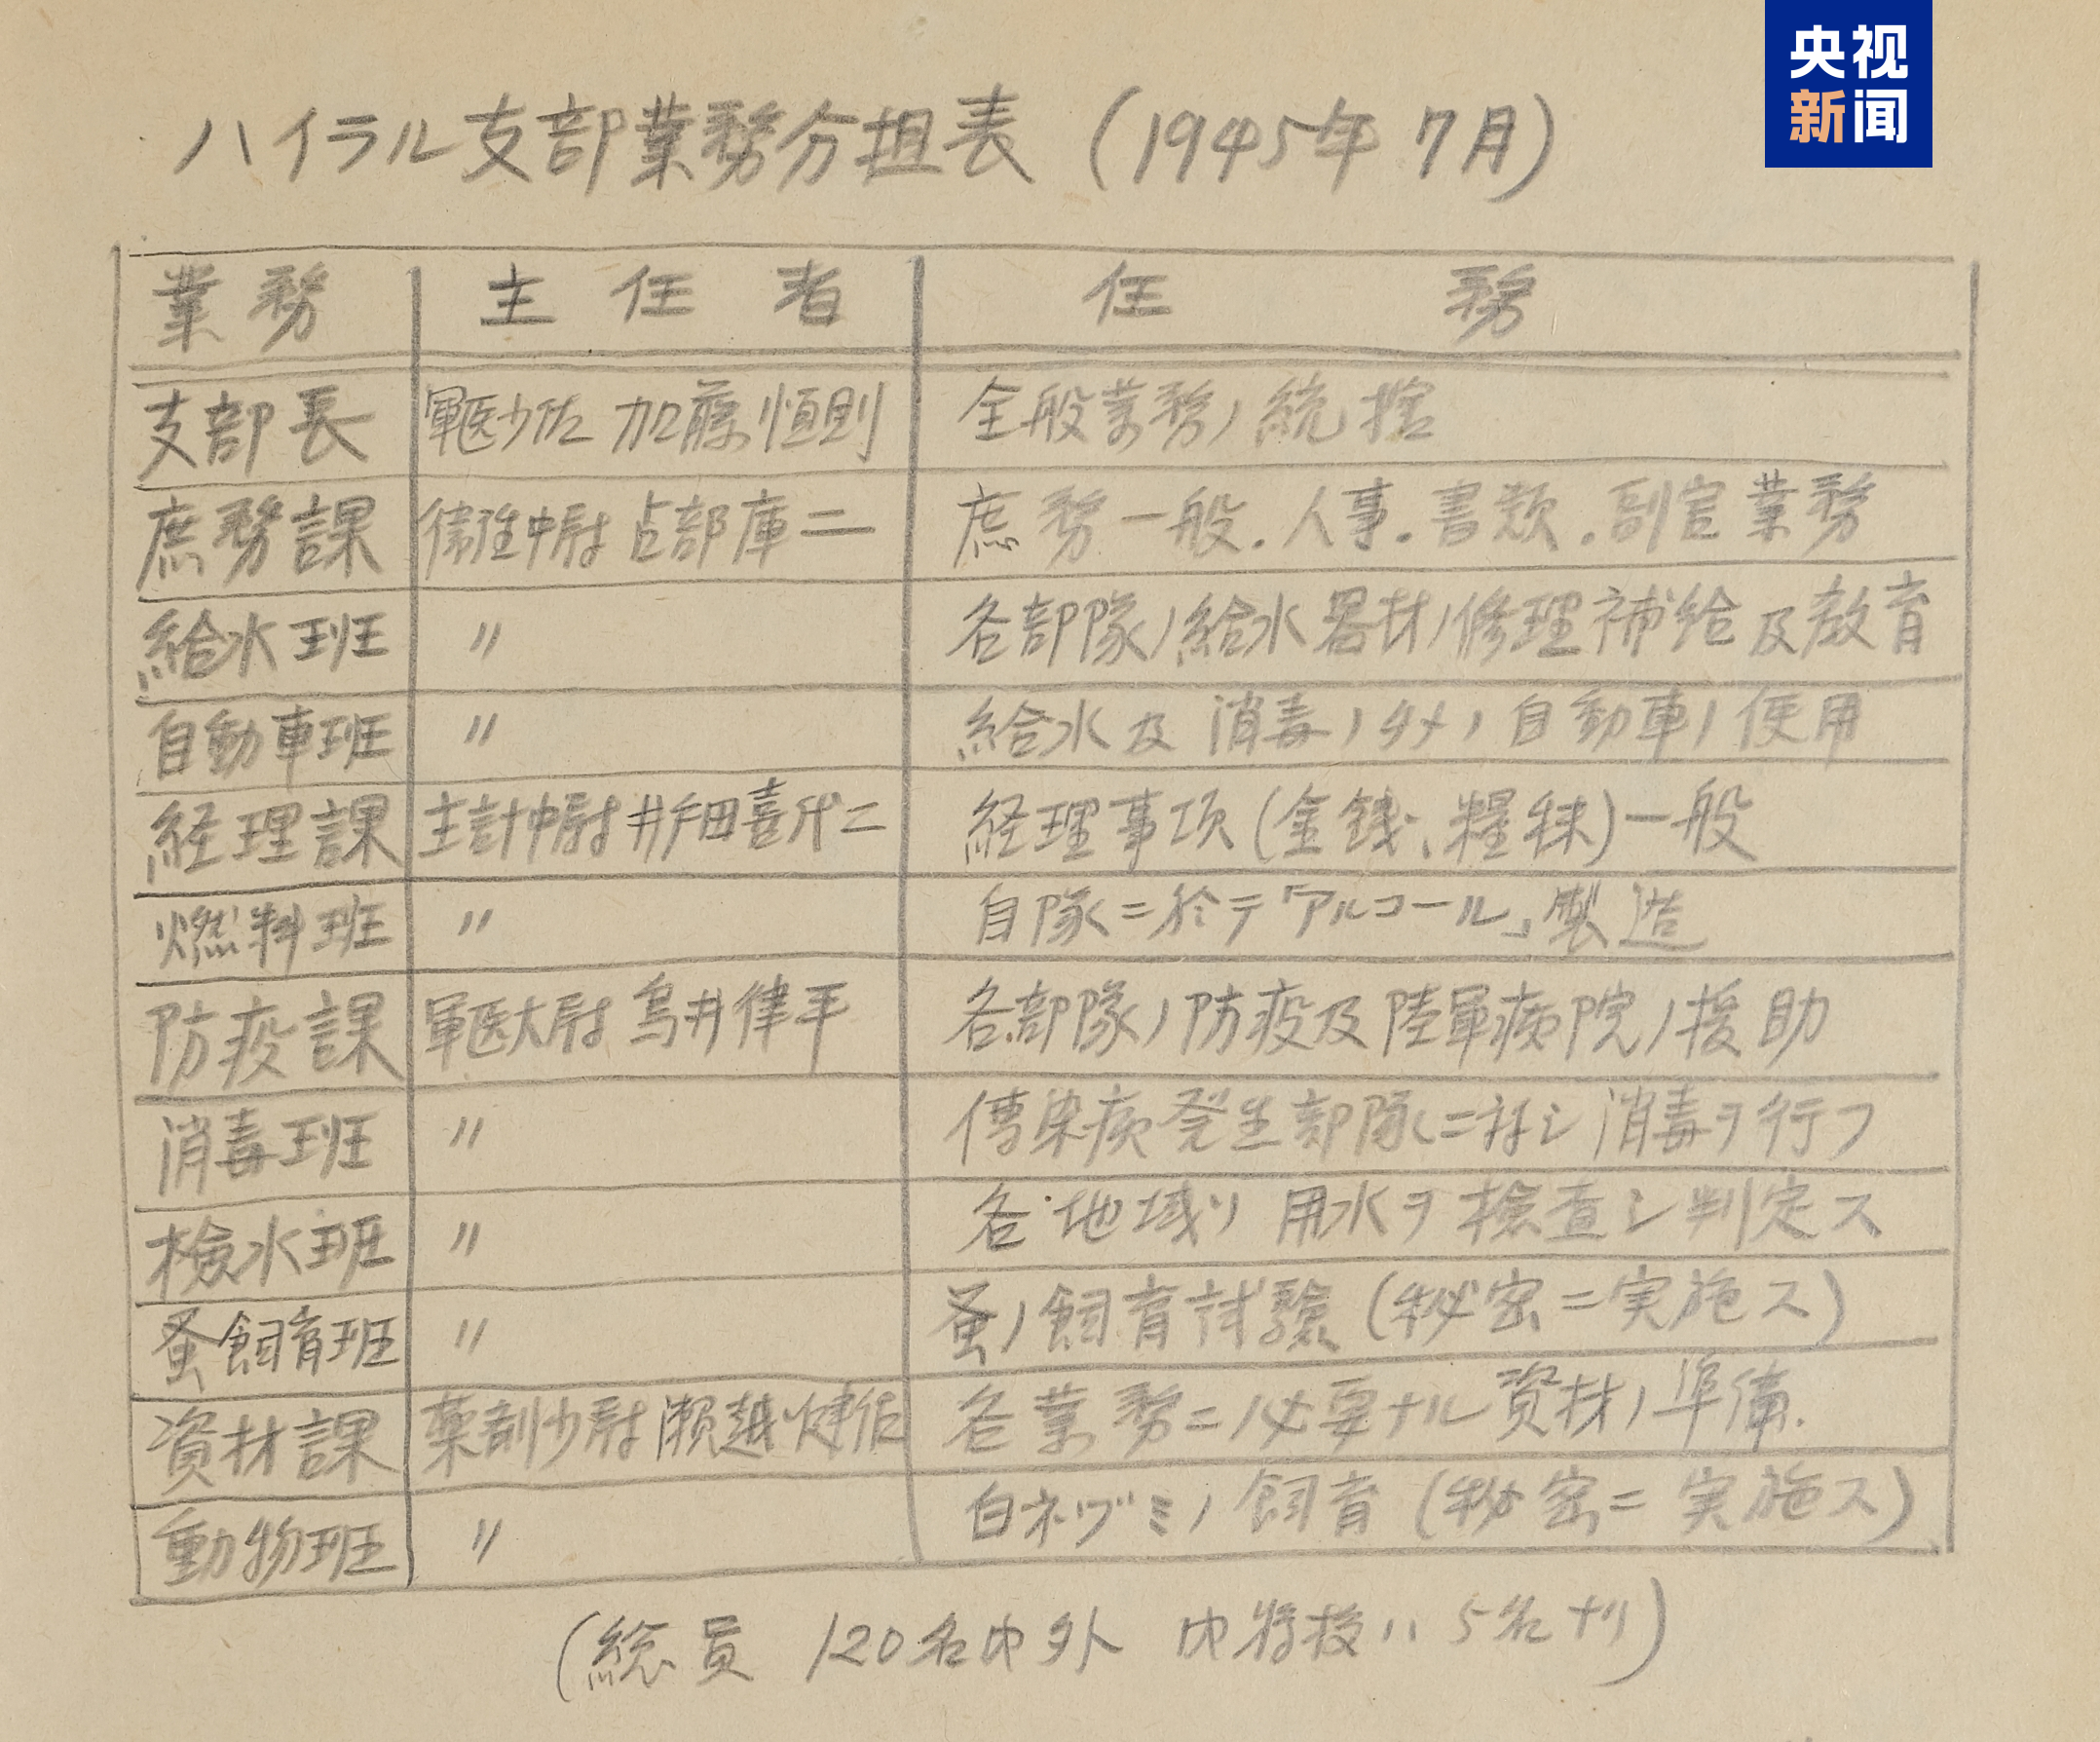 央视
新闻
ハイラル支部業務分担表(1945年7月)
業務 主任者 任務
支部長 軍医少佐 加藤恒則 全般業務ノ統括
庶務課 衛准中尉 占部庫二 庶務一般.人事.書類.副官業務
給水班 〃 各部隊ノ給水器材ノ修理補給及教育
自動車班 〃 給水及消毒ノタメノ自動車ノ使用
経理課 主計中尉 井戸田喜代二 経理事項(金銭、糧秣)一般
燃料班 〃 自隊ニ於テ「アルコール」製造
防疫課 軍医大尉 鳥井律平 各部隊ノ防疫及陸軍病院ノ援助
消毒班 〃 傳染病発生部隊ニ対シ消毒ヲ行フ
検水班 〃 各地域ノ用水ヲ検査シ判定ス
蚤飼育班 〃 蚤ノ飼育試験(秘密ニ実施ス)
資材課 薬剤少尉 瀬越健 各業務ニ必要ナル資材ノ準備.
動物班 〃 白ネヅミノ飼育(秘密ニ実施ス)
(総員 120名内外 内将校ハ5名ナリ)